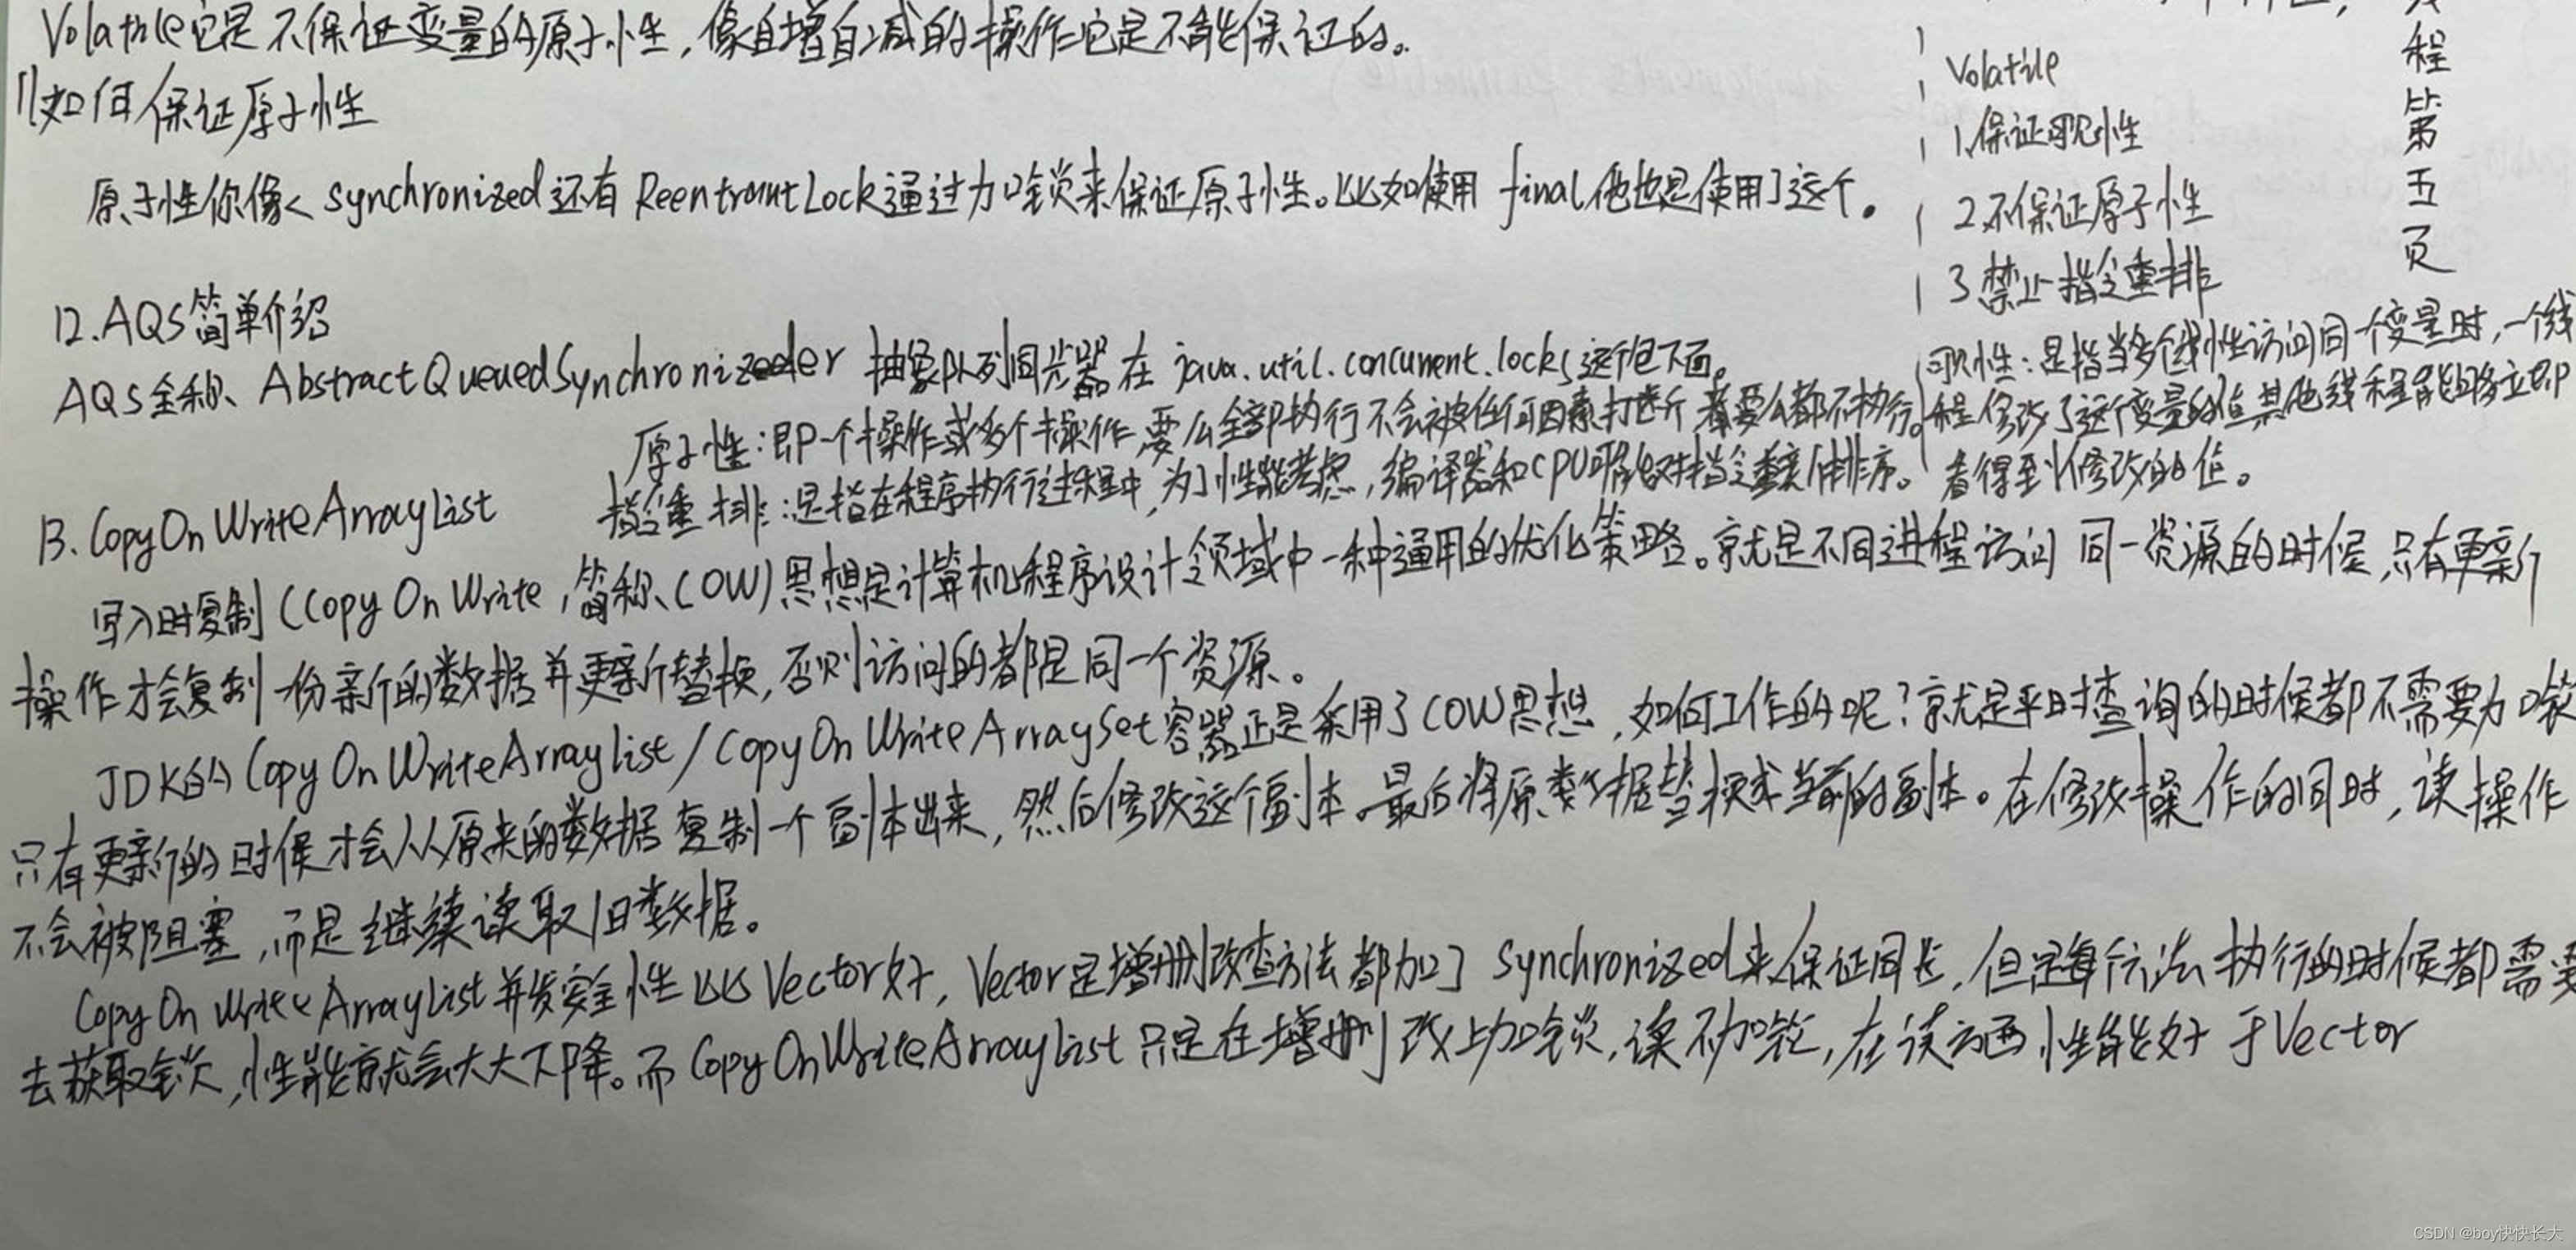 Volatile它是不保证变量的原子性，像自增自减的操作它是不能保证的。
11如何保证原子性
原子性你像 synchronized还有 ReentrantLock通过加锁来保证原子性。比如使用 final他也是使用了这个。
Volatile
1.保证可见性
2.不保证原子性
3.禁止指令重排
程第五页
12.AQS简单介绍
AQS全称、AbstractQueuedSynchronizeder 抽象队列同步器 在 java.util.concurrent.locks这个包下面。
可见性：是指当多个线性访问同一个变量时，一个线
程修改了这个变量的值，其他线程能够立即
看得到修改的值。
原子性：即一个操作或多个操作，要么全部执行不会被任何因素打断，要么都不执行。
指令重排：是指在程序执行过程中，为了性能考虑，编译器和CPU可能会对指令重新排序。
13.CopyOnWriteArrayList
写入时复制（CopyOnWrite，简称、COW）思想是计算机程序设计领域中一种通用的优化策略。就是不同进程访问 同一资源的时候，只有更新
操作才会复制一份新的数据并更新替换，否则访问的都是同一个资源。
JDK的CopyOnWriteArrayList/CopyOnWriteArraySet容器正是采用了COW思想，如何工作的呢？就是平时查询的时候都不需要加锁
只有更新的时候才会从原来的数据复制一个副本出来，然后修改这个副本，最后将原数据替换成当前的副本。在修改操作的同时，读操作
不会被阻塞，而是继续读取旧数据。
CopyOnWriteArrayList并发安全性比Vector好，Vector是增删改查方法都加了 Synchronized来保证同步，但是每个方法执行的时候都需要
去获取锁，性能就会大大下降。而 CopyOnWriteArrayList只是在增删改上加锁，读不加锁，在读方面性能好于Vector
CSDN @boy快快长大